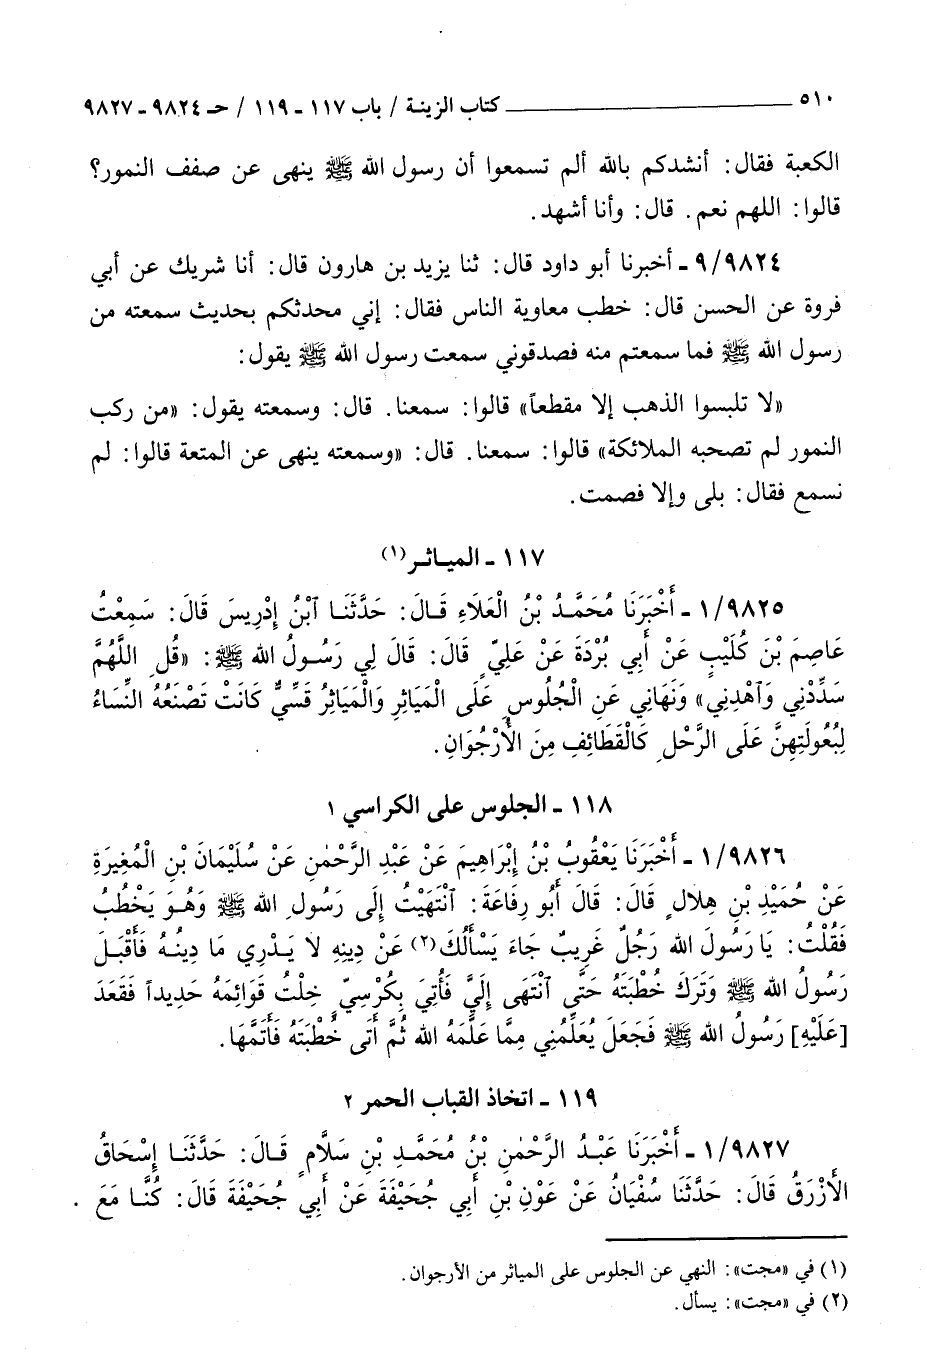 ٥١٠ كتاب الزينة / باب ١١٧ - ١١٩ / حـ ٩٨٢٤ - ٩٨٢٧
الكعبة فقال: أنشدكم بالله ألم تسمعوا أن رسول الله ﷺ ينهى عن صفف النمور؟
قالوا: اللهم نعم. قال: وأنا أشهد.
٩/٩٨٢٤ - أخبرنا أبو داود قال: ثنا يزيد بن هارون قال: أنا شريك عن أبي
فروة عن الحسن قال: خطب معاوية الناس فقال: إني محدثكم بحديث سمعته من
رسول الله ﷺ فما سمعتم منه فصدقوني سمعت رسول الله ﷺ يقول:
«لا تلبسوا الذهب إلا مقطعاً» قالوا: سمعنا. قال: وسمعته يقول: «من ركب
النمور لم تصحبه الملائكة» قالوا: سمعنا. قال: «وسمعته ينهى عن المتعة قالوا: لم
نسمع فقال: بلى وإلا فصمت.
١١٧ - المياثر(١)
١/٩٨٢٥ - أَخْبَرَنَا مُحَمَّدُ بْنُ الْعَلَاءِ قَالَ: حَدَّثَنَا ٱبْنُ إِدْرِيسَ قَالَ: سَمِعْتُ
عَاصِمَ بْنَ كُلَيْبٍ عَنْ أَبِي بُرْدَةَ عَنْ عَلِيٍّ قَالَ: قَالَ لِي رَسُولُ الله ﷺ: «قُلِ اللَّهُمَّ
سَدِّدْنِي وَٱهْدِنِي» وَنَهَانِي عَنِ الْجُلُوسِ عَلَى الْمَيَاثِرِ وَالْمَيَاثِرُ قَسِّيٌّ كَانَتْ تَصْنَعُهُ النِّسَاءُ
لِبُعُولَتِهِنَّ عَلَى الرَّحْلِ كَالْقَطَائِفِ مِنَ الْأُرْجُوَانِ.
١١٨ - الجلوس على الكراسي ١
١/٩٨٢٦ - أَخْبَرَنَا يَعْقُوبُ بْنُ إِبْرَاهِيمَ عَنْ عَبْدِ الرَّحْمٰنِ عَنْ سُلَيْمَانَ بْنِ الْمُغِيرَةِ
عَنْ حُمَيْدِ بْنِ هِلَالٍ قَالَ: قَالَ أَبُو رِفَاعَةَ: ٱنْتَهَيْتُ إِلَى رَسُولِ الله ﷺ وَهُوَ يَخْطُبُ
فَقُلْتُ: يَا رَسُولَ الله رَجُلٌ غَرِيبٌ جَاءَ يَسْأَلُكَ(٢) عَنْ دِينِهِ لَا يَدْرِي مَا دِينُهُ فَأَقْبَلَ
رَسُولُ الله ﷺ وَتَرَكَ خُطْبَتَهُ حَتَّى ٱنْتَهَى إِلَيَّ فَأُتِيَ بِكُرْسِيٍّ خِلْتُ قَوَائِمَهُ حَدِيداً فَقَعَدَ
[عَلَيْهِ] رَسُولُ الله ﷺ فَجَعَلَ يُعَلِّمُنِي مِمَّا عَلَّمَهُ الله ثُمَّ أَتَى خُطْبَتَهُ فَأَتَمَّهَا.
١١٩ - اتخاذ القباب الحمر ٢
١/٩٨٢٧ - أَخْبَرَنَا عَبْدُ الرَّحْمٰنِ بْنُ مُحَمَّدِ بْنِ سَلَّامٍ قَالَ: حَدَّثَنَا إِسْحَاقُ
الْأَزْرَقُ قَالَ: حَدَّثَنَا سُفْيَانُ عَنْ عَوْنِ بْنِ أَبِي جُحَيْفَةَ عَنْ أَبِي جُحَيْفَةَ قَالَ: كُنَّا مَعَ
(١) في «مجت»: النهي عن الجلوس على المياثر من الأرجوان.
(٢) في «مجت»: يسأل.